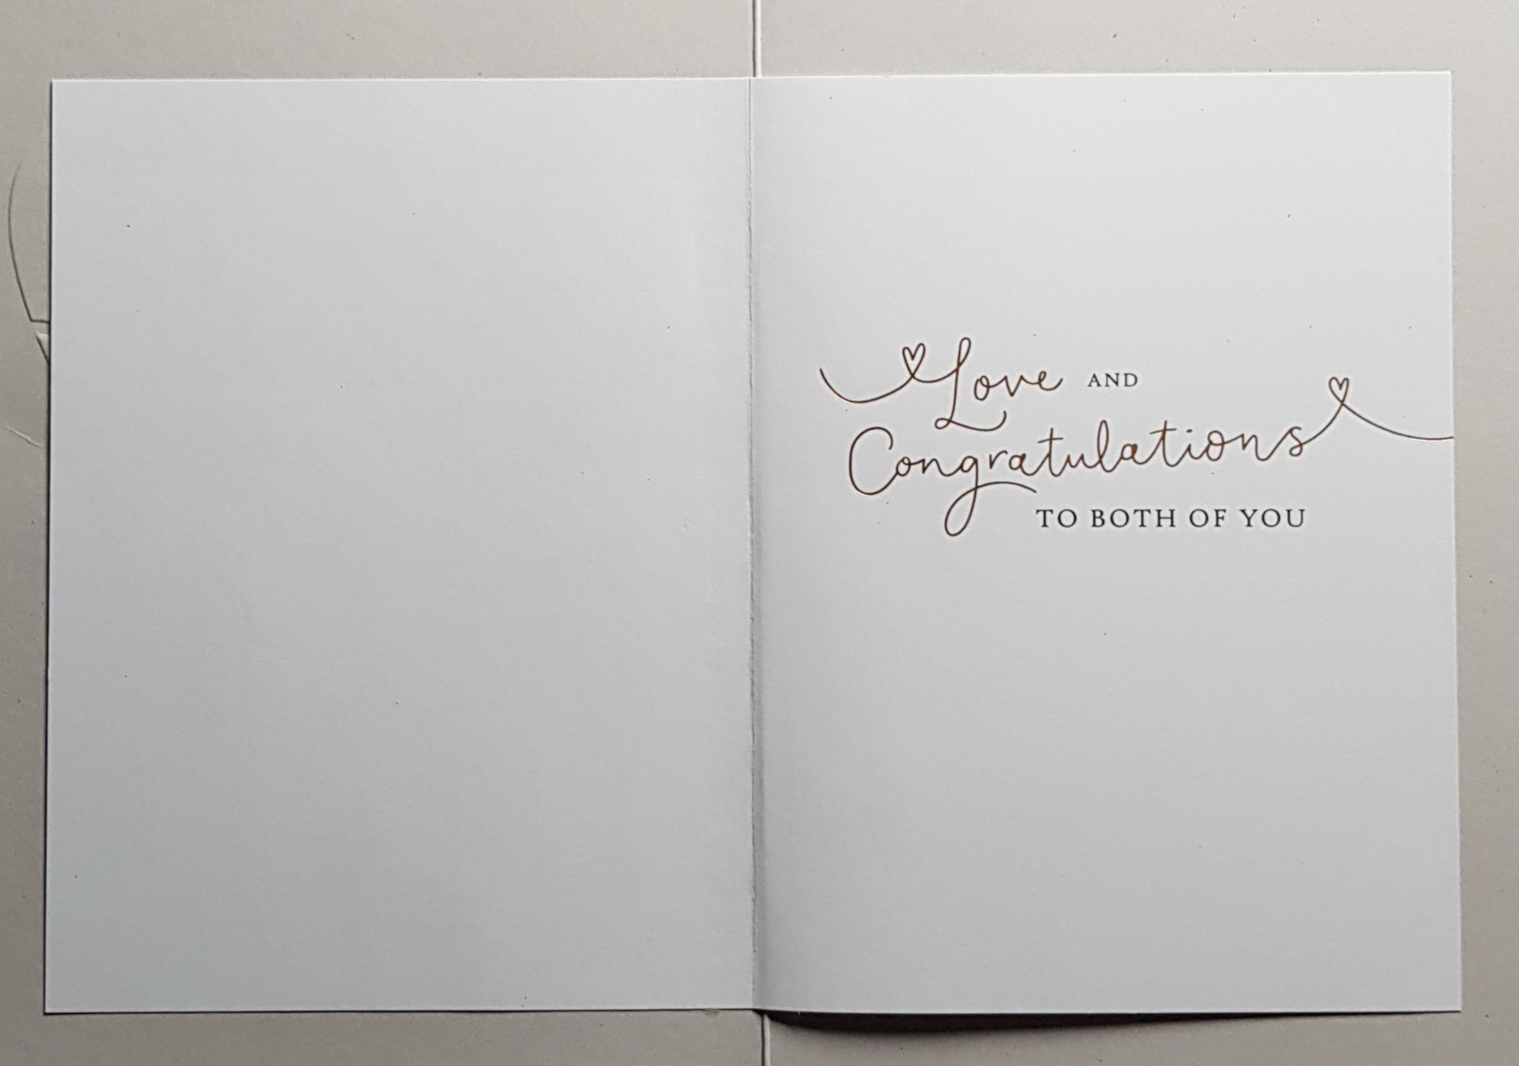 Love AND
Congratulations
TO BOTH OF YOU